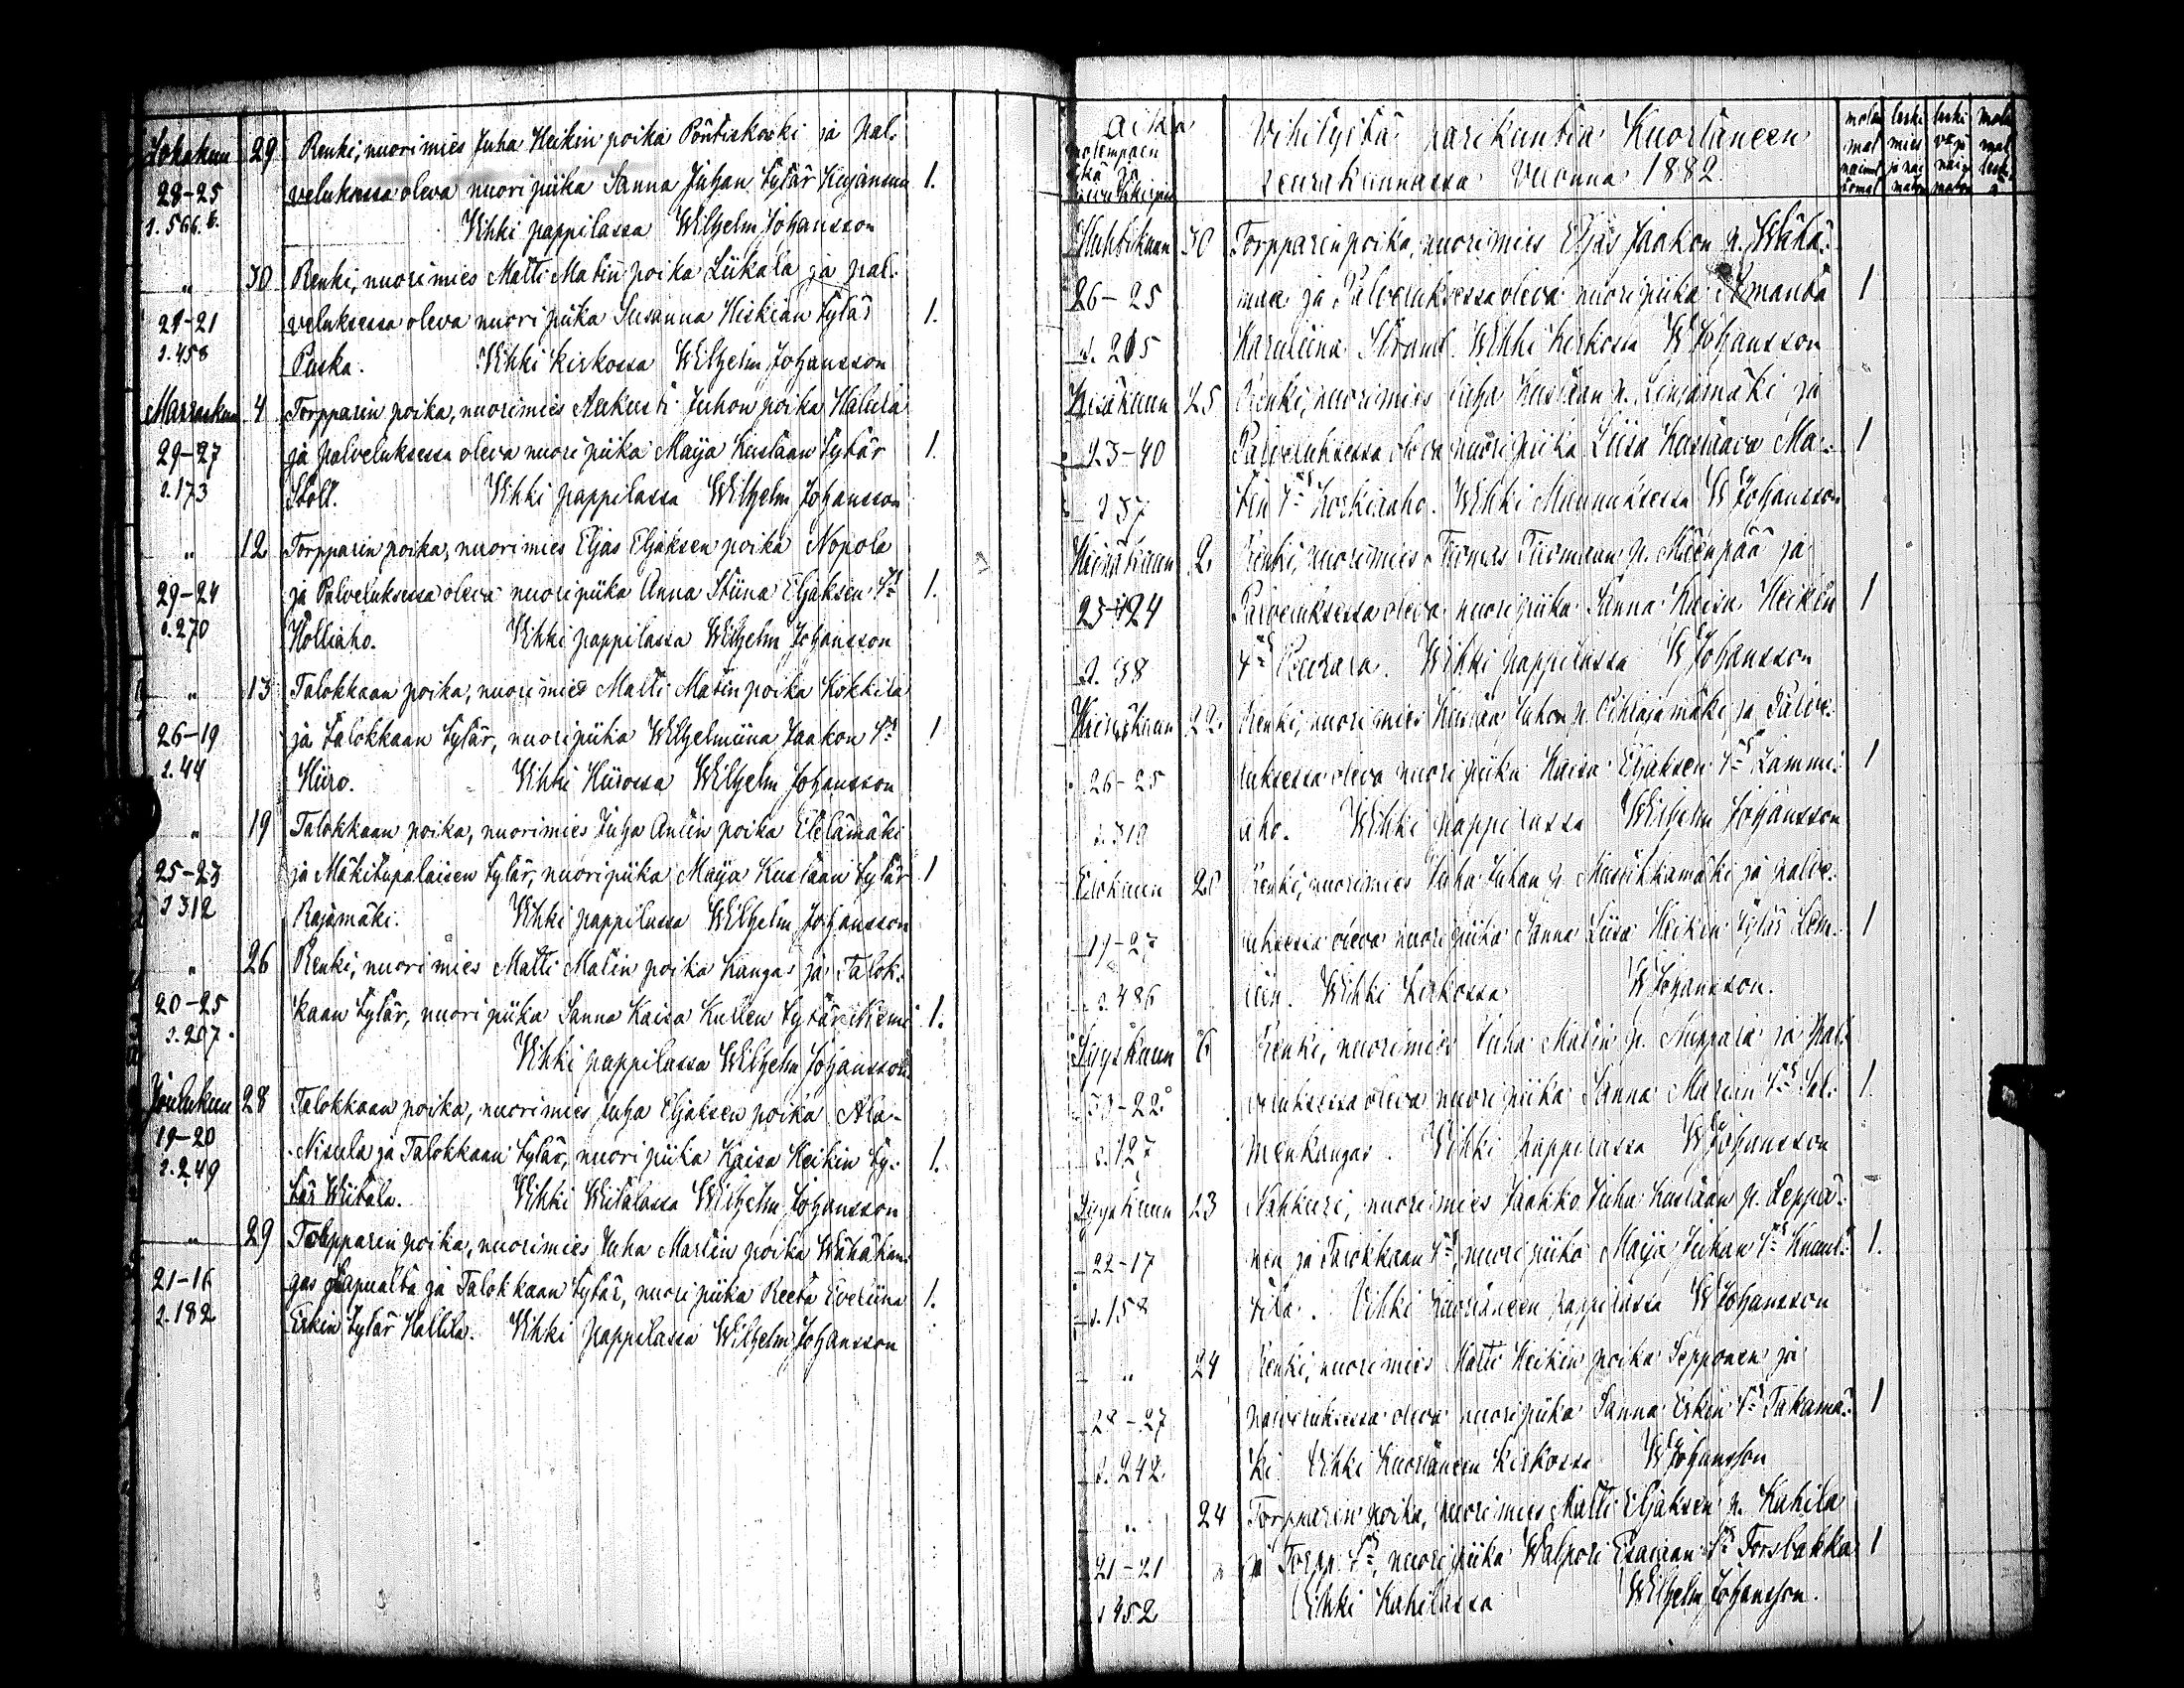 Lokakuu 29 Renki, nuorimies Juha Heikin poika Pöntiskoski ja pal-
28-25 veluksessa oleva nuori piika Sanna Juhan tytär Kujansuu 1.
s. 566. Vihki pappilassa Wilhelm Johansson
" 30 Renki, nuorimies Matti Matin poika Liikala ja pal-
21 veluksessa oleva nuori piika Susanna Hiskian tytär 1.
s. 458 Puska. Vihki kirkossa Wilhelm Johansson
Marraskuu 4 Torpparin poika, nuorimies Aukusti Juhon poika
29-27 ja palveluksessa oleva nuori piika Maija Kustaan tytär 1.
s. 173 Vihki pappilassa Wilhelm Johansson
" 12 Torpparin poika, nuorimies Eljas Eljaksen poika Nopola
29-24 ja Palveluksessa oleva nuori piika Anna Stiina Eljaksen tr 1.
s. 270 Holliaho. Vihki pappilassa Wilhelm Johansson
" 13 Talokkaan poika, nuorimies Matti Matin poika Kokkila
26-19 ja talokkaan tytär, nuoripiika Wilhelmiina Jaakon tr 1
s. 44 Hiiro. Vihki Hiirossa Wilhelm Johansson
" 19 Talokkaan poika, nuorimies Juha Antin poika Etelämäki
25-23 ja Mäkitupalaisen tytär, nuoripiika Maija Kustaan tytär 1
s 312 Rajamäki. Vihki pappilassa Wilhelm Johansson
" 26 Renki, nuori mies Matti Matin poika Kangas ja Talok-
20-25 kaan tytär, nuori piika Sanna Kaisa tytär 1.
s. 207. Vihki pappilassa Wilhelm Johansson
Joulukuu 28 Talokkaan poika, nuorimies Juha Eljaksen poika Ala-
19-20 -Nisula ja Talokkaan tytär, nuori piika Kaisa Heikin ty- 1.
s. 249 tär Wiitala. Vihki Wiitalassa Wilhelm Johansson
" 29 Torpparin poika, nuorimies Juha Martin poika Wähäkan-
21-16 gas Lapualta ja Talokkaan tytär, nuori piika Reeta Eveliina 1.
s. 182 Erkin tytär Hallila. Vihki pappilassa Wilhelm Johansson
Aika Vihityitä parikuntia Kuortaneen
molempain ikä ja seurakunnassa Vuonna 1882.
Huhtikuun 30 Torpparin poika, nuorimies Eljas Jaakon p. Wähä-
26-25 maa ja Palveluksessa oleva nuori piika Amanta 1
s. 205 Karuliina Strand. Wihki kirkossa W Johansson
Kesäkuun 25 Renki, nuorimies Juha Kustaan p. ja
23-40 Palveluksessa oleva nuori piika Liisa Kustaava Ma- 1
s 57 tin tr Korkiaaho. Wihki W Johansson
Heinäkuun 2. Renki, nuorimies Tuomas Tuomaan p. Mäenpää ja
24 Palveluksessa oleva nuori piika Sanna Kaisa Heikin 1
s. 58 tr Wihki pappilassa W Johansson
Heinäkuun 22. Renki, nuorimies Kustaa Juhon p. Pihlajamäki ja Palve-
26-25 luksessa oleva nuori piika Kaisa Eljaksen tr Lammi- 1
s. 310 aho. Wihki pappilassa Wilhelm Johansson
Elokuun 20 Renki, nuorimies Juha Juhan p. Mansikkamäki ja palve-
19-27 luksessa oleva nuori piika Sanna Liisa Heikin tytär 1
s. 486 Wihki kirkossa W Johansson.
Syyskuun Renki, nuorimies Juha Matin p. ja pal-
22 veluksessa oleva nuori piika Sanna tr Sal- 1.
s. 127 menkangas. Wihki pappilassa W Johansson
Syyskuun 23 Nahkuri, nuorimies Jaakko Juha Kustaan p. Leppä-
22-17 nen ja Talokkaan tr, nuori piika Maija Juhan tr 1.
s. 158 tila. Vihki Kuortaneen pappilassa W Johansson
" 24 Renki, nuori mies Matti Heikin poika Sepponen ja
28-27 palveluksessa oleva nuori piika Sanna Erkin tr Takamä- 1
s. 242. ki Vihki Kuortaneen kirkossa W Johansson
" 24 Torpparin poika, nuorimies Matti Eljaksen p. Kahila
21-21 ja Torpp. tr, nuori piika Walpori Esaiaan tr Forsbakka 1
s 452 Vihki Kahilassa Wilhelm Johansson.